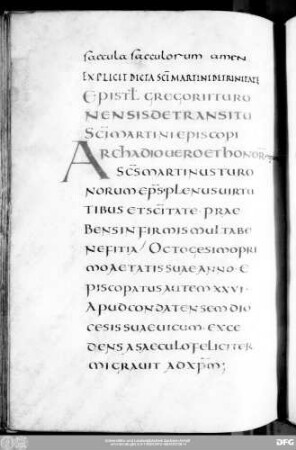 saecula saeculorum amen
EXPLICIT DICTA SCI MARTINI DE TRINITATE
EPISTL GREGORII TURO
NENSIS DE TRANSITU
SCI MARTINI EPISCOPI
ARCHADIO UERO ET HONOR
SCS MARTINUS TURO
NORUM EPS PLENUS UIRTU
TIBUS ET SCITATE · PRAE
BENS INFIRMIS MULTA BE
NEFITIA / OCTOGESIMO PRI
MO AETATIS SUAE ANNO · E
PISCOPATUS AUTEM XXVI ·
APUD CONDATENSEM DIO
CESIS SUAE UICUM · EXCE
DENS A SAECULO FELICITER
MIGRAVIT AD XPM;
DFG